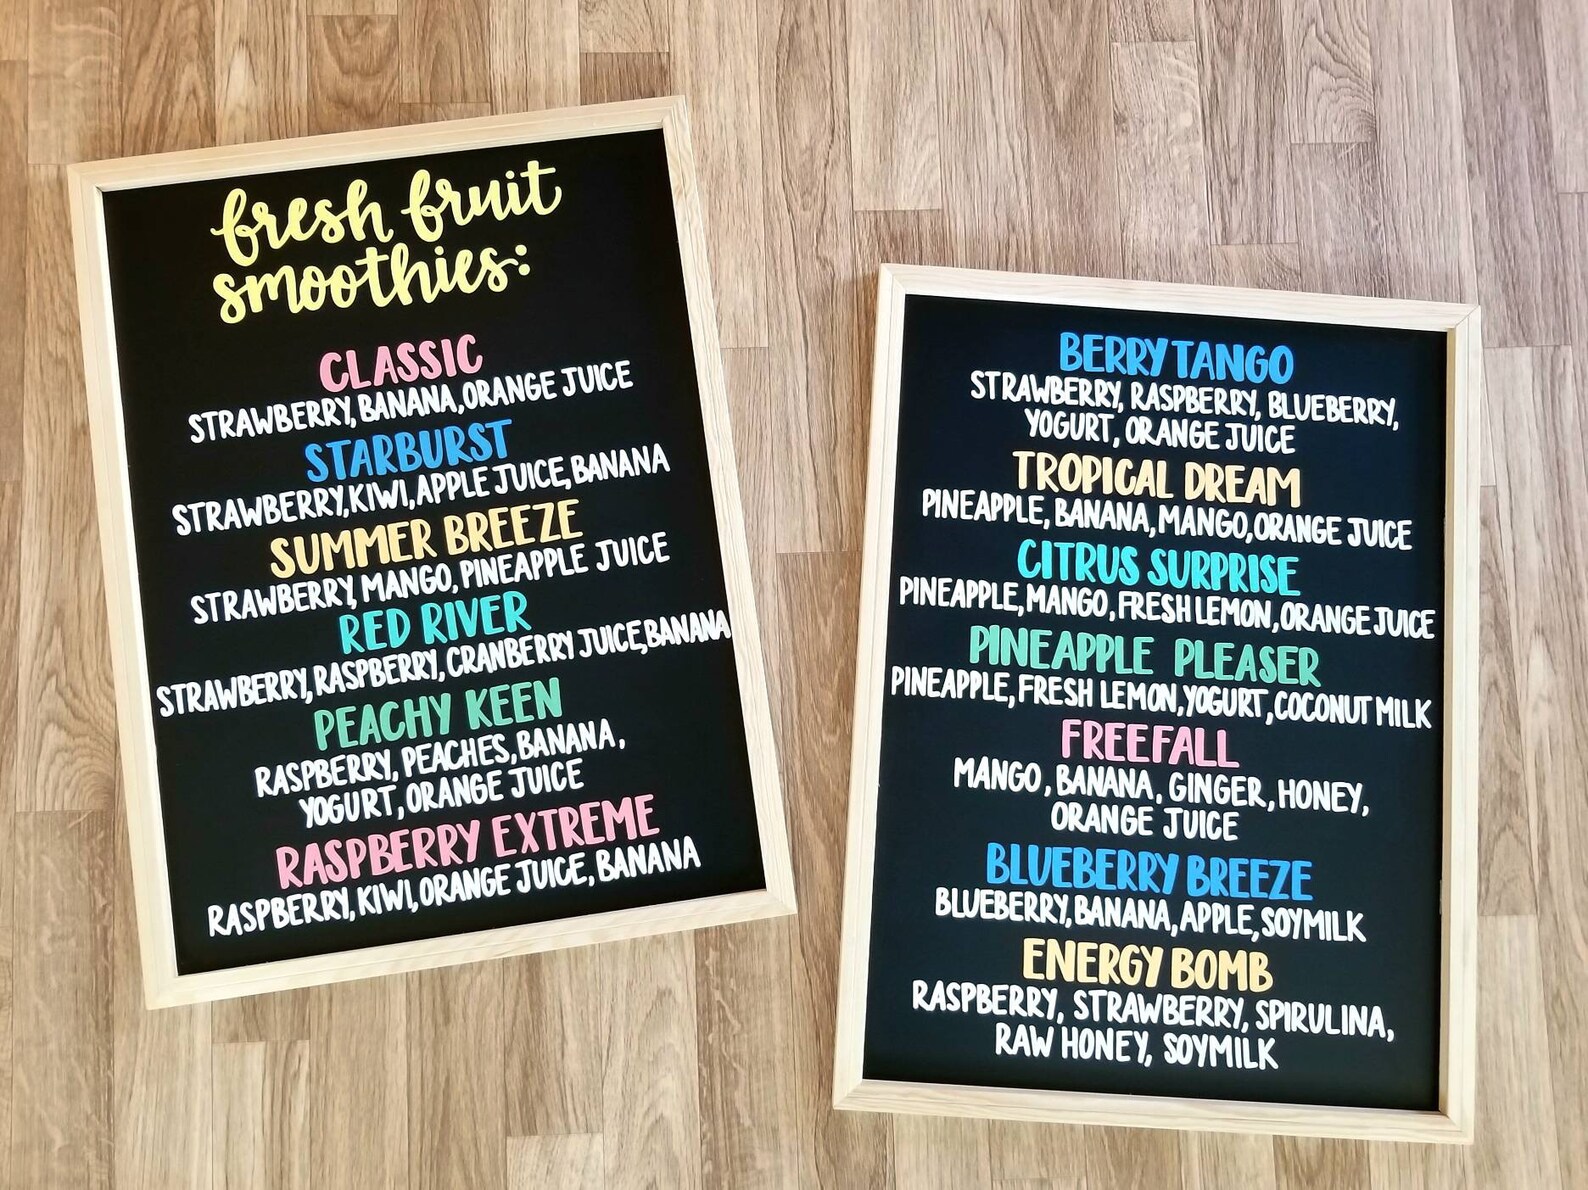 fresh fruit
smoothies:
CLASSIC
STRAWBERRY, BANANA, ORANGE JUICE
STARBURST
STRAWBERRY, KIWI, APPLE JUICE, BANANA
SUMMER BREEZE
STRAWBERRY, MANGO, PINEAPPLE JUICE
RED RIVER
STRAWBERRY, RASPBERRY, CRANBERRY JUICE, BANANA
PEACHY KEEN
RASPBERRY, PEACHES, BANANA,
YOGURT, ORANGE JUICE
RASPBERRY EXTREME
RASPBERRY, KIWI, ORANGE JUICE, BANANA
BERRY TANGO
STRAWBERRY, RASPBERRY, BLUEBERRY,
YOGURT, ORANGE JUICE
TROPICAL DREAM
PINEAPPLE, BANANA, MANGO, ORANGE JUICE
CITRUS SURPRISE
PINEAPPLE, MANGO, FRESH LEMON, ORANGE JUICE
PINEAPPLE PLEASER
PINEAPPLE, FRESH LEMON, YOGURT, COCONUT MILK
FREEFALL
MANGO, BANANA, GINGER, HONEY,
ORANGE JUICE
BLUEBERRY BREEZE
BLUEBERRY, BANANA, APPLE, SOYMILK
ENERGY BOMB
RASPBERRY, STRAWBERRY, SPIRULINA,
RAW HONEY, SOYMILK